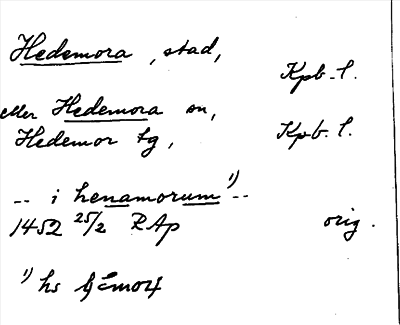 Hedemora, stad,
Kpb. l.
eller Hedemora sn,
Hedemor tg, Kpb. l.
-- i henamorum 1) --
1452 25/2 RAp orig.
1) hs